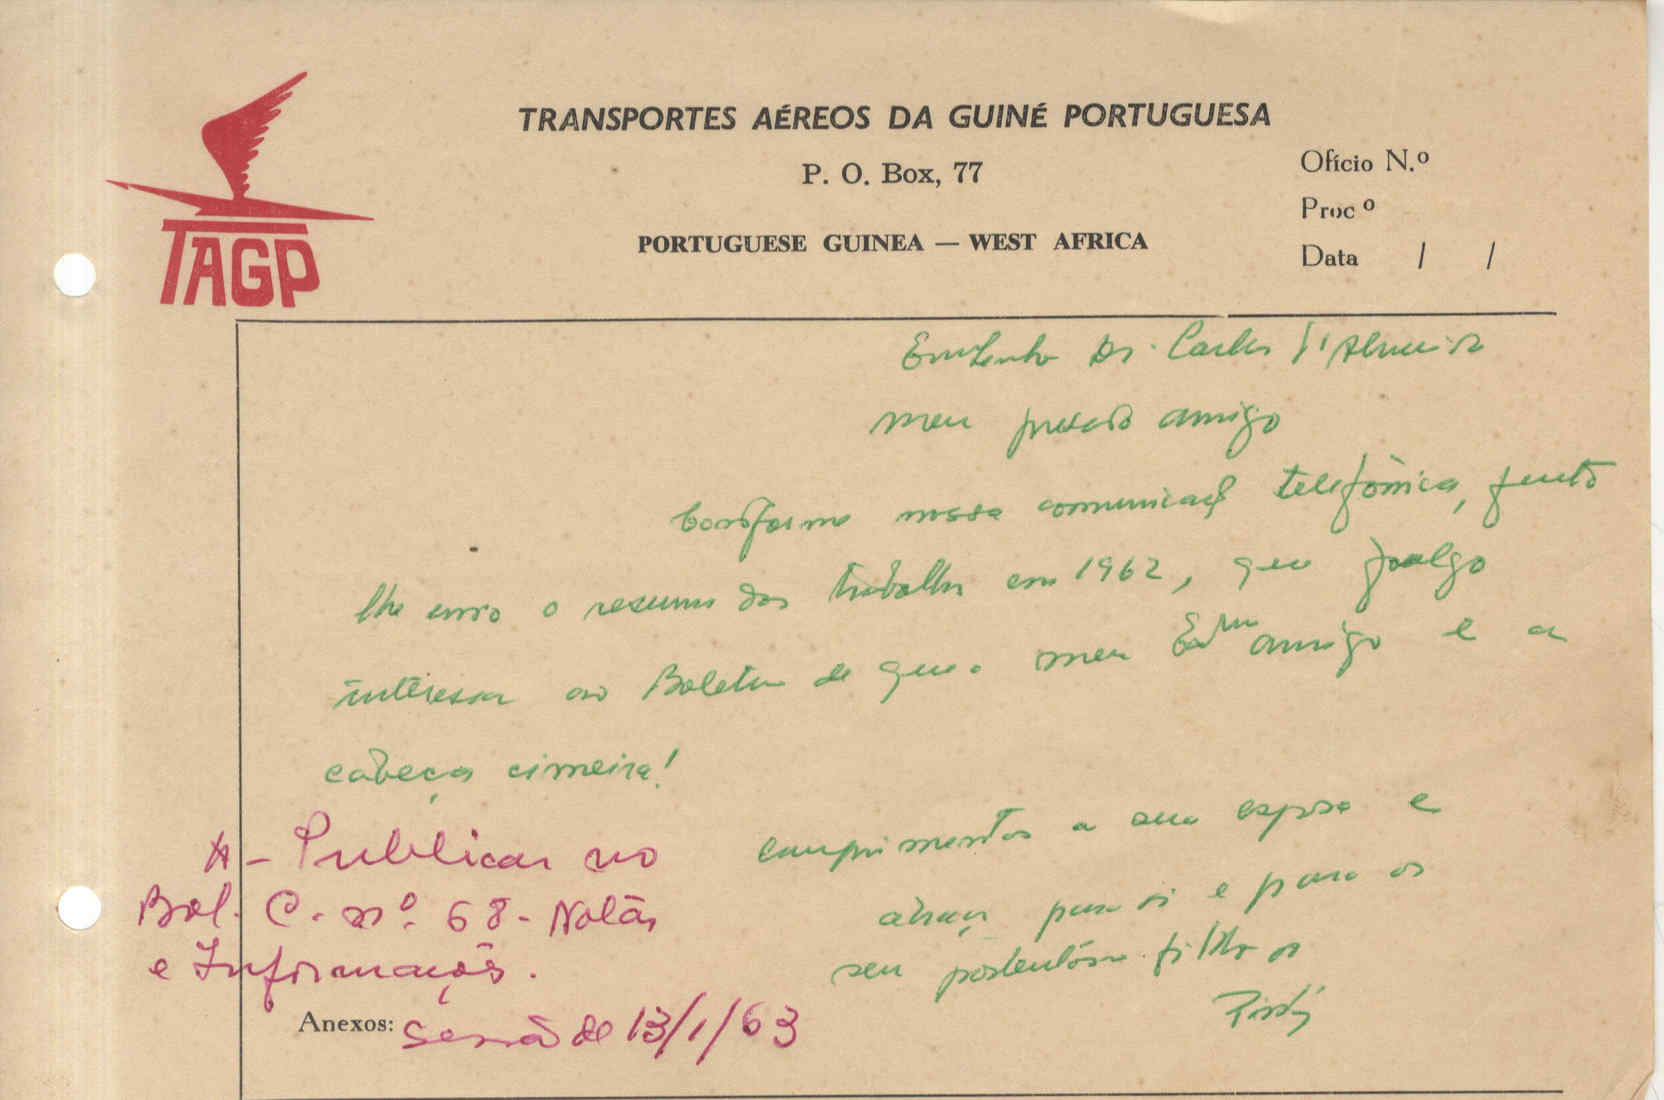 TRANSPORTES AÉREOS DA GUINÉ PORTUGUESA
P. O. Box, 77
PORTUGUESE GUINEA — WEST AFRICA
Ofício N.º
Proc º
Data / /
TAGP
Dr. Carlos d'Almeida
meu prezado amigo
Conforme nossa comunicação telefónica, junto
lhe envio o resumo dos trabalhos em 1962, que julgo
interessar ao Boletim de que o meu Exmo amigo é a
cabeça cimeira!
cumprimentos a sua esposa e
abraços para si e para os
seu
A - Publicar no
Bol. C. nº 68 - Notas
e Informações.
Anexos:
Sessão de 13/1/63